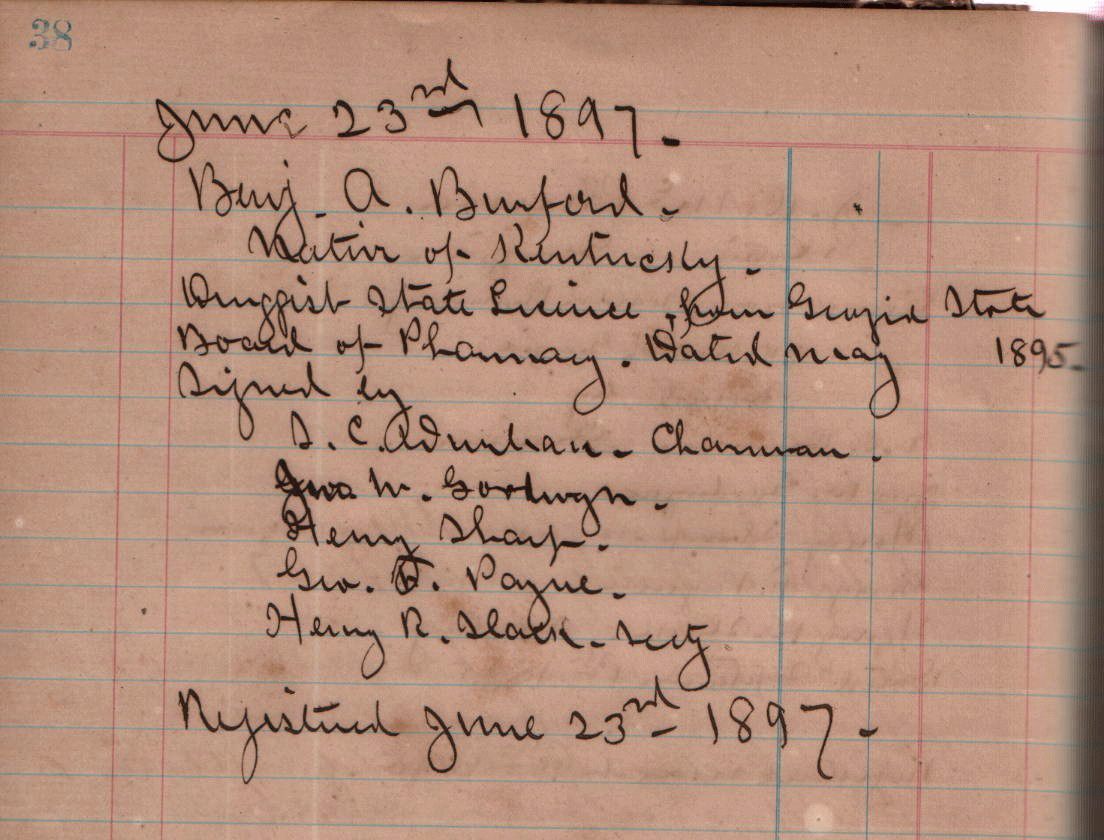 38
June 23rd 1897.
Benj. A. Burford.
Native of Kentucky.
Druggist State License, from Georgia State
Board of Pharmacy. Dated May 1895.
Signed by
S. C. Durban - Chairman.
Jno W. Goodwyn.
Henry Sharp.
Geo. F. Payne.
Henry R. Slack - Secty
Registered June 23rd 1897.